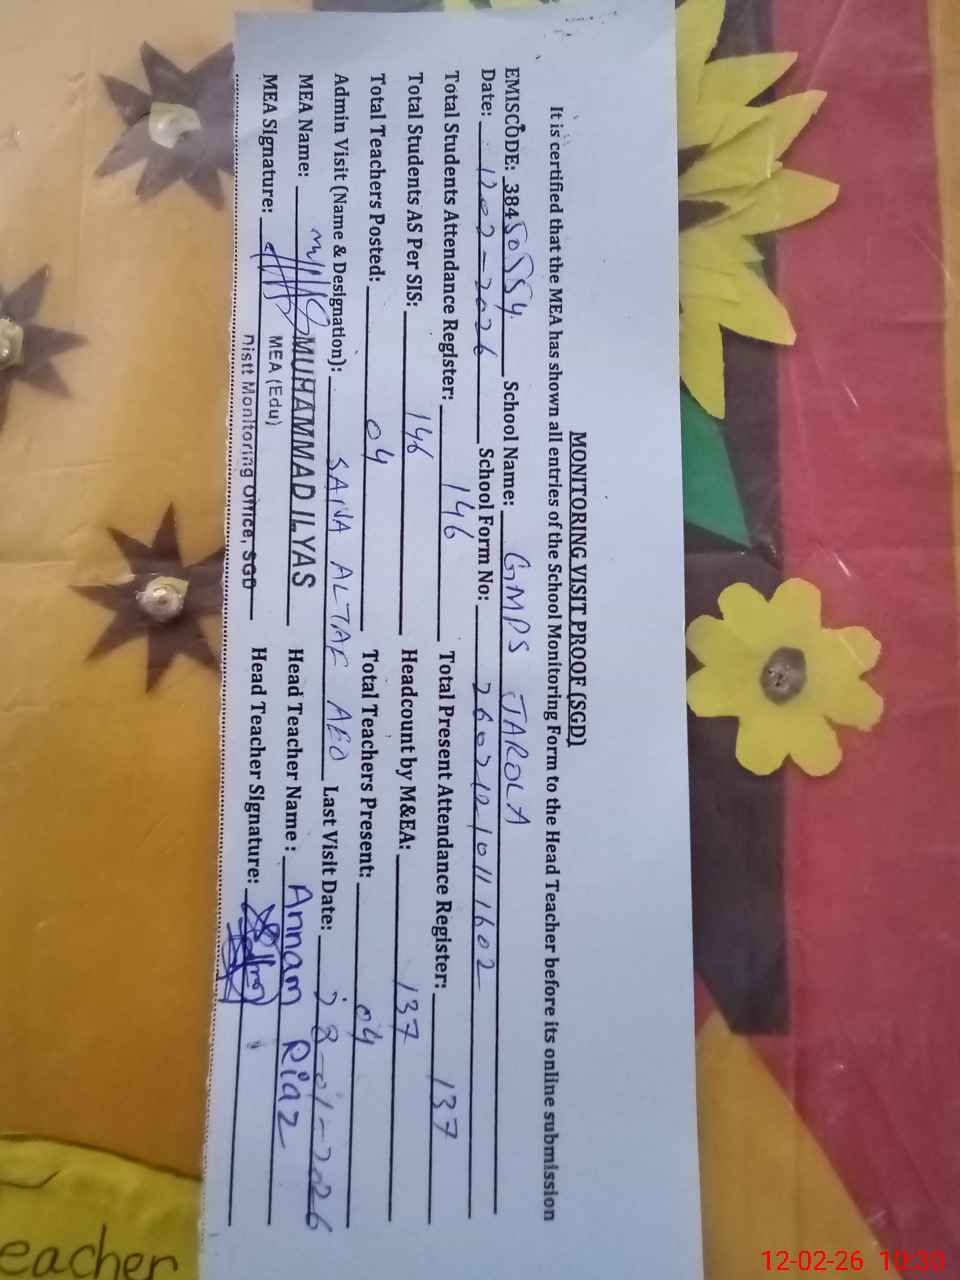 MONITORING VISIT PROOF (SGD)
It is certified that the MEA has shown all entries of the School Monitoring Form to the Head Teacher before its online submission
EMISCODE: 38450554 School Name: GMPS JAROLA
Date: 1202-2026 School Form No: 2602121011602
Total Students Attendance Register: 146 Total Present Attendance Register: 137
Total Students AS Per SIS: 146 Headcount by M&EA: 137
Total Teachers Posted: 04 Total Teachers Present: 04
Admin Visit (Name & Designation): SANA ALTAF AEO Last Visit Date: 28-01-2026
MEA Name: MUHAMMAD ILYAS Head Teacher Name: Annam Riaz
MEA (Edu)
MEA Signature: Distt Monitoring Office, SGD Head Teacher Signature:
eacher
12-02-26 10:30